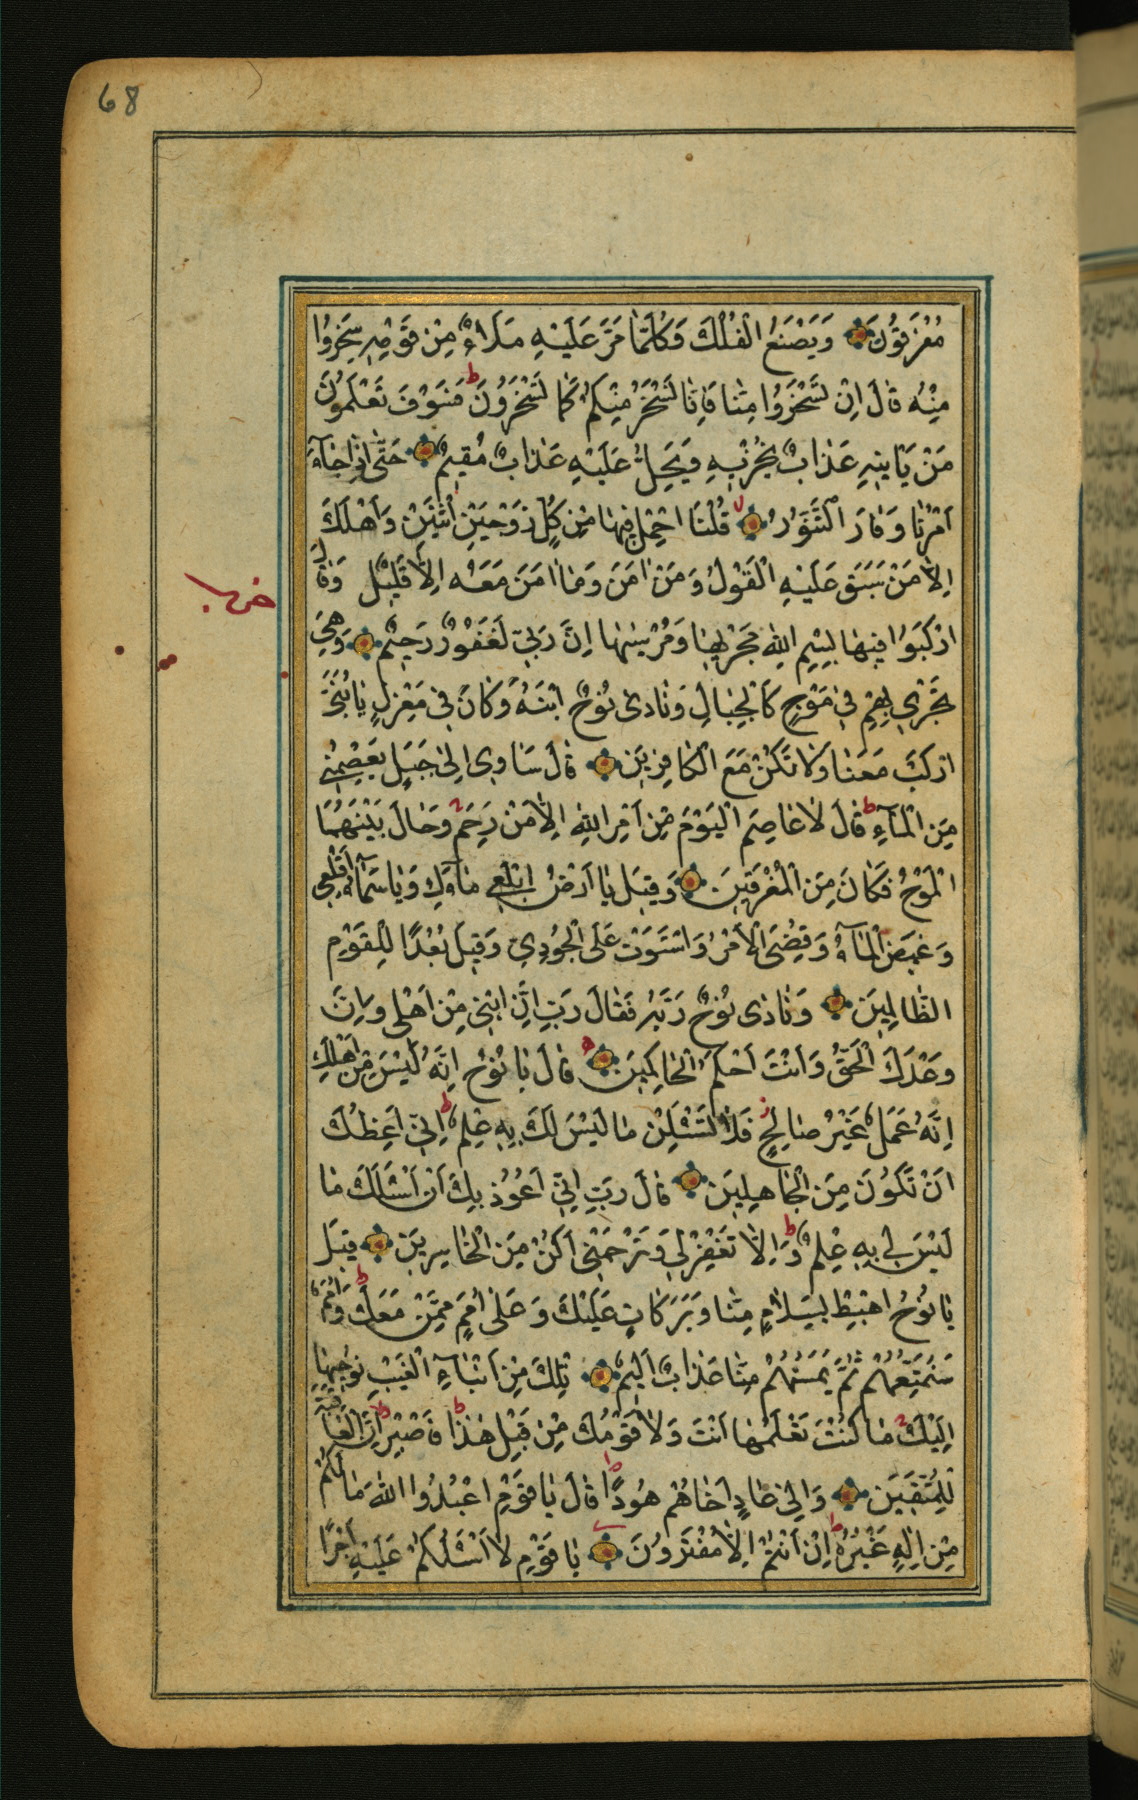 68
مُغْرَقُونَ وَيَصْنَعُ الْفُلْكَ وَكُلَّمَا مَرَّ عَلَيْهِ مَلَاءٌ مِنْ قَوْمِهِ سَخِرُوا
مِنْهُ قَالَ اِنْ تَسْخَرُوا مِنَّا فَاِنَّا نَسْخَرُ مِنْكُمْ كَمَا تَسْخَرُونَ ط فَسَوْفَ تَعْلَمُونَ
مَنْ يَاْتِيهِ عَذَابٌ يُخْزِيهِ وَيَحِلُّ عَلَيْهِ عَذَابٌ مُقِيمٌ حَتّٰى اِذَا جَآءَ
اَمْرُنَا وَفَارَ التَّنُّورُ لا قُلْنَا احْمِلْ فِيهَا مِنْ كُلٍّ زَوْجَيْنِ اثْنَيْنِ وَاَهْلَكَ
اِلَّا مَنْ سَبَقَ عَلَيْهِ الْقَوْلُ وَمَنْ اٰمَنَ وَمَا اٰمَنَ مَعَهُ اِلَّا قَلِيلٌ وَقَالَ
ارْكَبُوا فِيهَا بِسْمِ اللّٰهِ مَجْرٰيهَا وَمُرْسٰيهَا اِنَّ رَبِّي لَغَفُورٌ رَحِيمٌ وَهِيَ
حزب
تَجْرِي بِهِمْ فِي مَوْجٍ كَالْجِبَالِ وَنَادٰى نُوحٌ ابْنَهُ وَكَانَ فِي مَعْزِلٍ يَا بُنَيَّ
ارْكَبْ مَعَنَا وَلَا تَكُنْ مَعَ الْكَافِرِينَ قَالَ سَاٰوِي اِلٰى جَبَلٍ يَعْصِمُنِي
مِنَ الْمَآءِ ط قَالَ لَا عَاصِمَ الْيَوْمَ مِنْ اَمْرِ اللّٰهِ اِلَّا مَنْ رَحِمَ وَحَالَ بَيْنَهُمَا
الْمَوْجُ فَكَانَ مِنَ الْمُغْرَقِينَ وَقِيلَ يَا اَرْضُ ابْلَعِي مَآءَكِ وَيَا سَمَآءُ اَقْلِعِي
وَغِيضَ الْمَآءُ وَقُضِيَ الْاَمْرُ وَاسْتَوَتْ عَلَى الْجُودِيِّ وَقِيلَ بُعْدًا لِلْقَوْمِ
الظَّالِمِينَ وَنَادٰى نُوحٌ رَبَّهُ فَقَالَ رَبِّ اِنَّ ابْنِي مِنْ اَهْلِي وَاِنَّ
وَعْدَكَ الْحَقُّ وَاَنْتَ اَحْكَمُ الْحَاكِمِينَ قَالَ يَا نُوحُ اِنَّهُ لَيْسَ مِنْ اَهْلِكَ
اِنَّهُ عَمَلٌ غَيْرُ صَالِحٍ فَلَا تَسْئَلْنِ مَا لَيْسَ لَكَ بِهِ عِلْمٌ ط اِنِّي اَعِظُكَ
اَنْ تَكُونَ مِنَ الْجَاهِلِينَ قَالَ رَبِّ اِنِّي اَعُوذُ بِكَ اَنْ اَسْئَلَكَ مَا
لَيْسَ لِي بِهِ عِلْمٌ ط وَاِلَّا تَغْفِرْ لِي وَتَرْحَمْنِي اَكُنْ مِنَ الْخَاسِرِينَ قِيلَ
يَا نُوحُ اهْبِطْ بِسَلَامٍ مِنَّا وَبَرَكَاتٍ عَلَيْكَ وَعَلٰى اُمَمٍ مِمَّنْ مَعَكَ ط وَاُمَمٌ
سَنُمَتِّعُهُمْ ثُمَّ يَمَسُّهُمْ مِنَّا عَذَابٌ اَلِيمٌ تِلْكَ مِنْ اَنْبَآءِ الْغَيْبِ نُوحِيهَا
اِلَيْكَ مَا كُنْتَ تَعْلَمُهَا اَنْتَ وَلَا قَوْمُكَ مِنْ قَبْلِ هٰذَا ط فَاصْبِرْ ط اِنَّ الْعَاقِبَةَ
لِلْمُتَّقِينَ وَاِلٰى عَادٍ اَخَاهُمْ هُودًا ط قَالَ يَا قَوْمِ اعْبُدُوا اللّٰهَ مَا لَكُمْ
مِنْ اِلٰهٍ غَيْرُهُ ط اِنْ اَنْتُمْ اِلَّا مُفْتَرُونَ يَا قَوْمِ لَا اَسْئَلُكُمْ عَلَيْهِ اَجْرًا